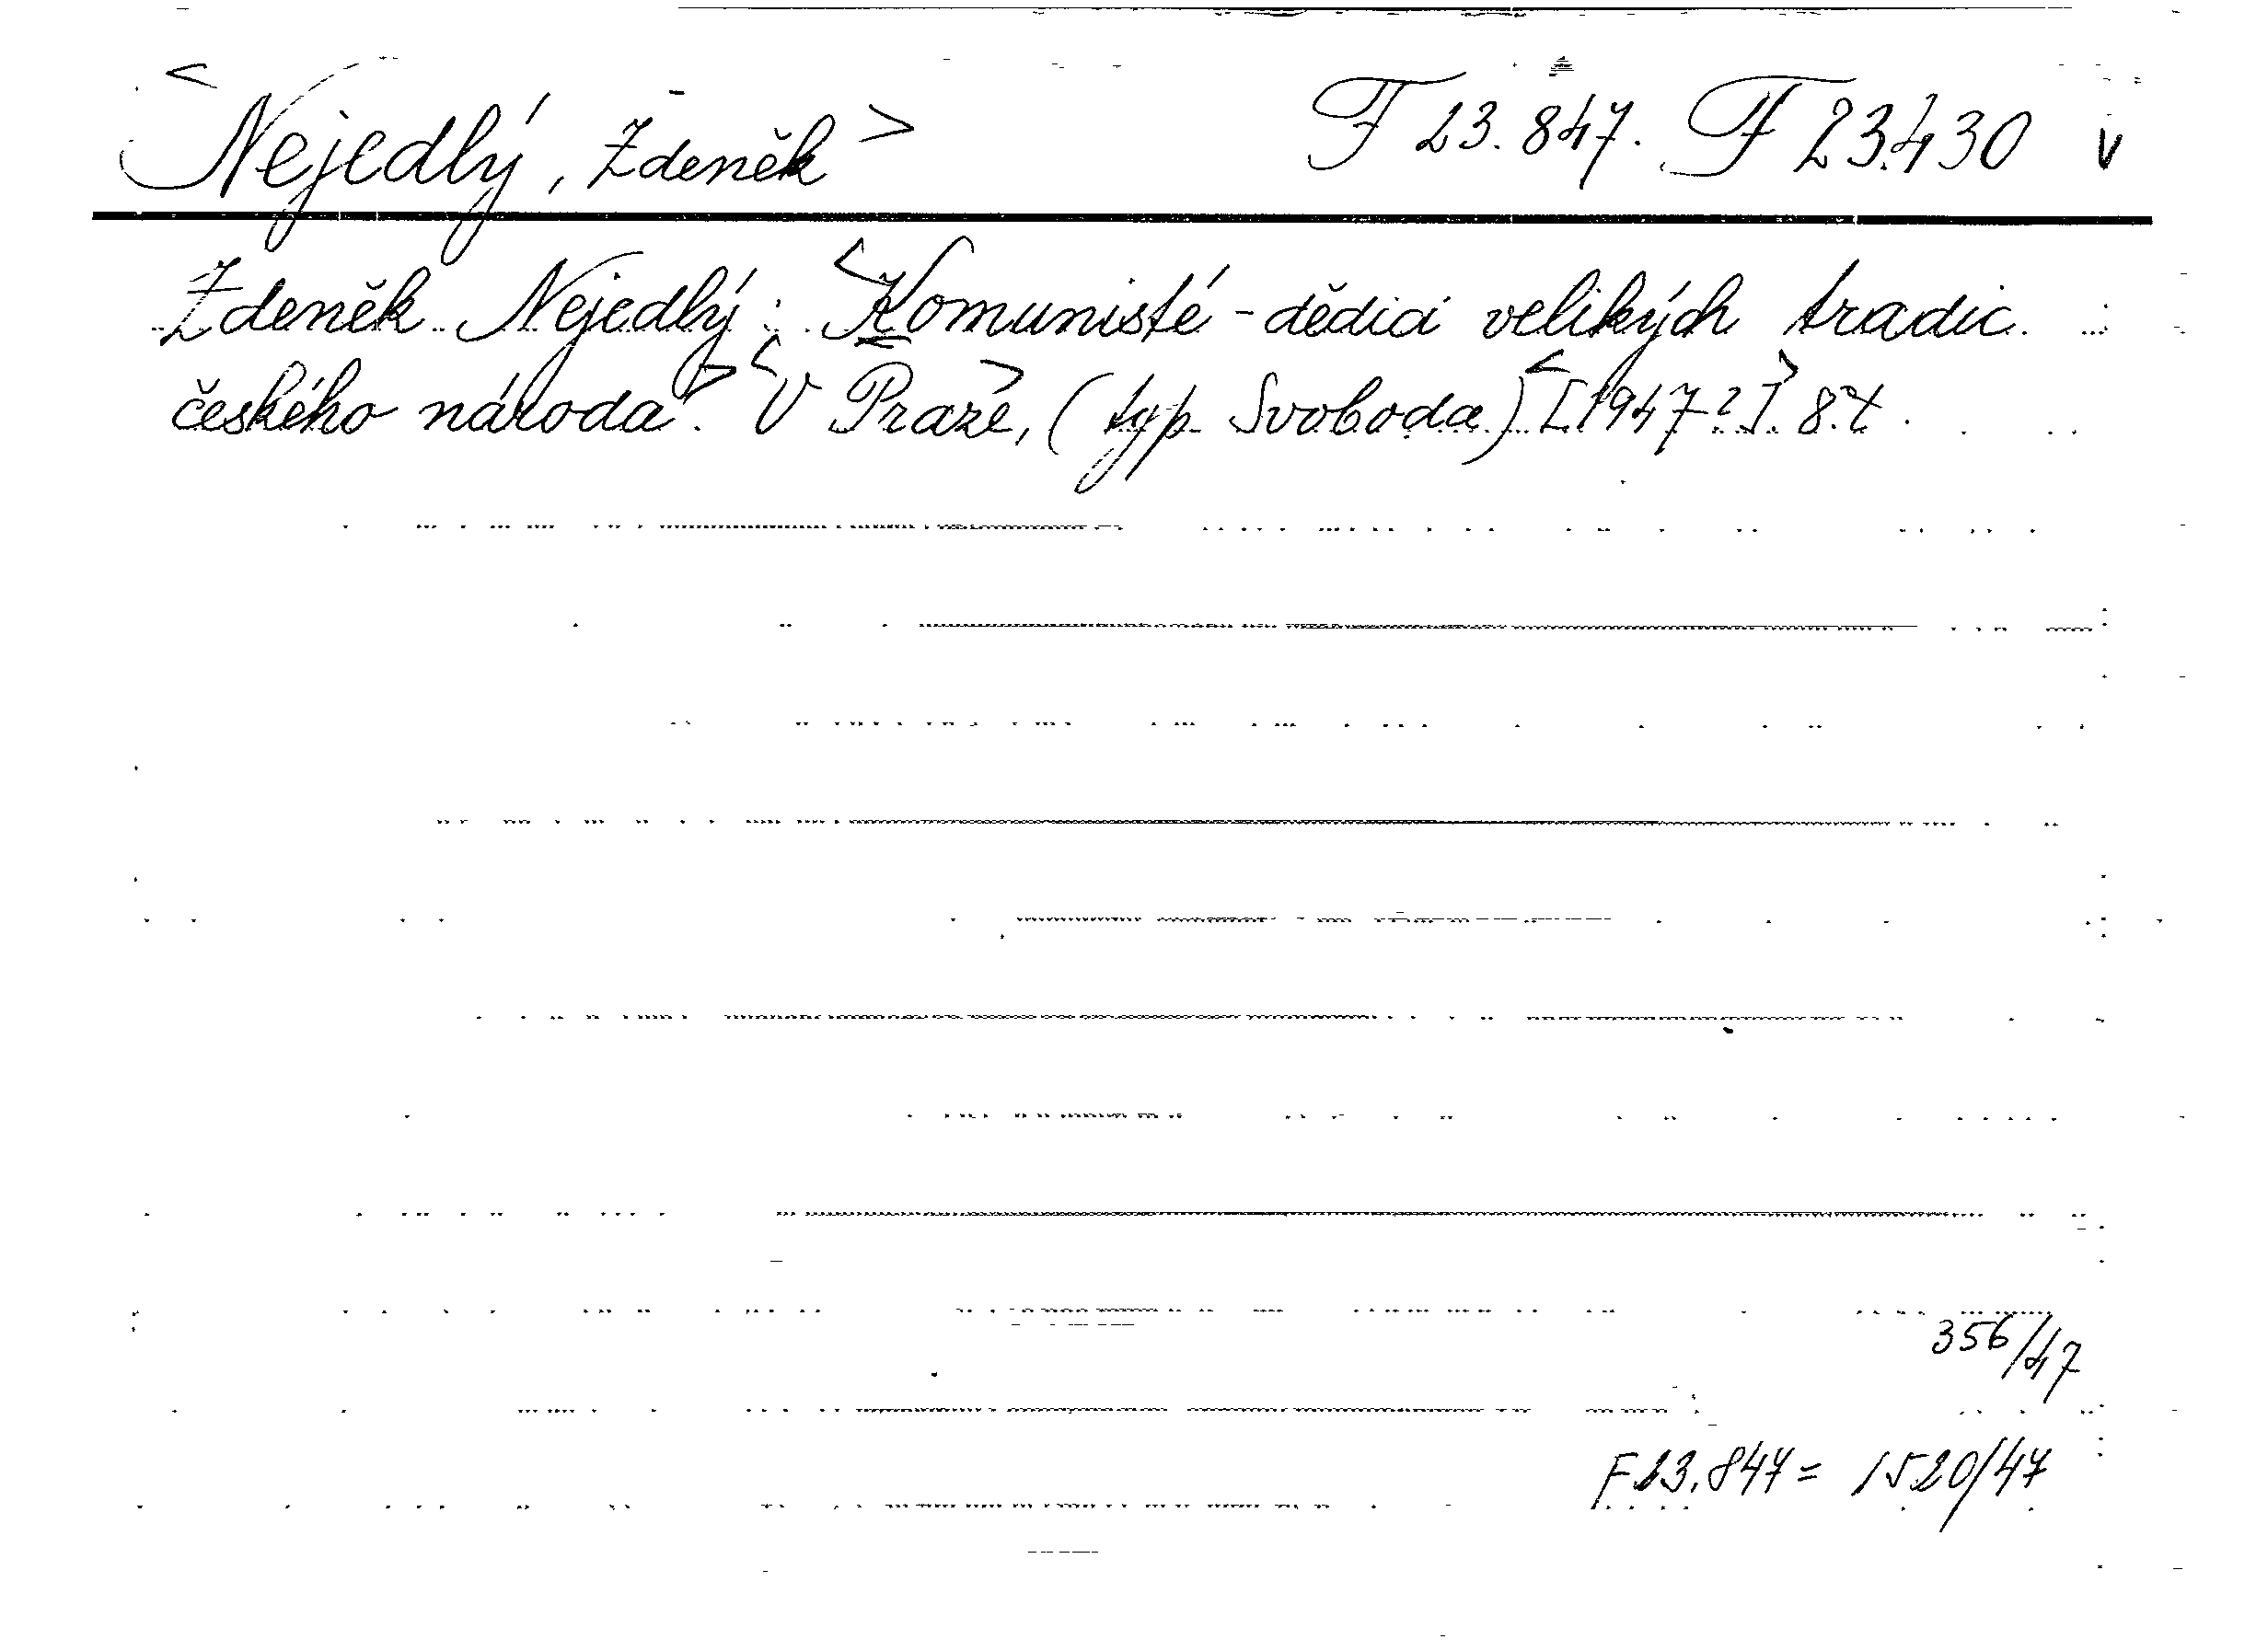 <Nejedlý, Zdeněk> F 23.847. F 23.430 v
Zdeněk Nejedlý: <Komunisté - dědici velikých tradic
českého národa.> <V Praze>, (typ. Svoboda) <[1947?]> 8°.
356/47
F23.847 = 1520/47